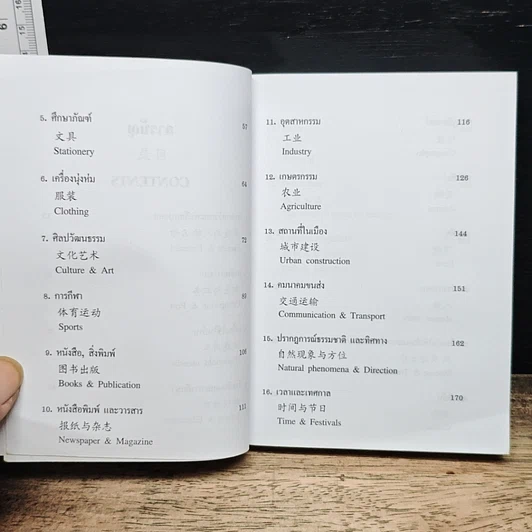 5. ศึกษาภัณฑ์ 57
文具
Stationery
6. เครื่องนุ่งห่ม 64
服装
Clothing
7. ศิลปวัฒนธรรม 72
文化艺术
Culture & Art
8. การกีฬา 89
体育运动
Sports
9. หนังสือ, สิ่งพิมพ์ 106
图书出版
Books & Publication
10. หนังสือพิมพ์ และวารสาร 111
报纸与杂志
Newspaper & Magazine
11. อุตสาหกรรม 116
工业
Industry
12. เกษตรกรรม 126
农业
Agriculture
13. สถานที่ในเมือง 144
城市建设
Urban construction
14. คมนาคมขนส่ง 151
交通运输
Communication & Transport
15. ปรากฏการณ์ธรรมชาติ และทิศทาง 162
自然现象与方位
Natural phenomena & Direction
16. เวลาและเทศกาล 170
时间与节日
Time & Festivals